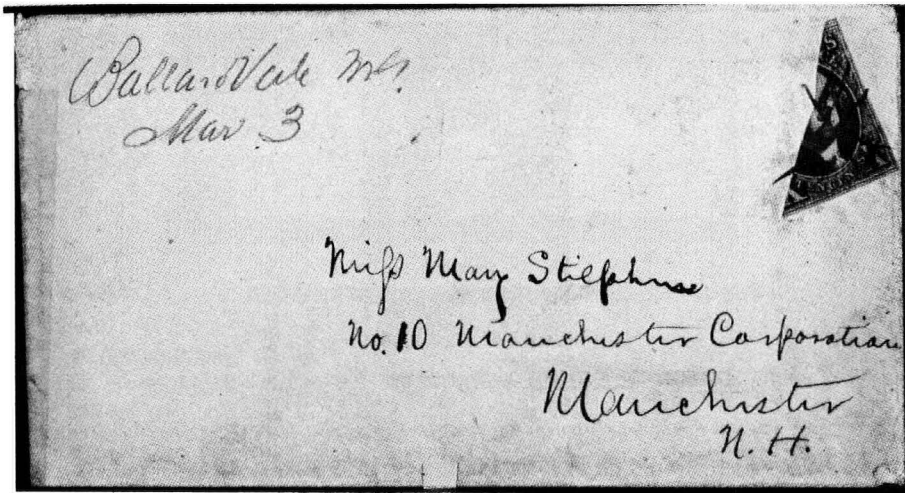 Ballard Vale Ms.
Mar 3
Miss May Stilphuse
No. 10 Manchester Corporation
Manchester
N. H.